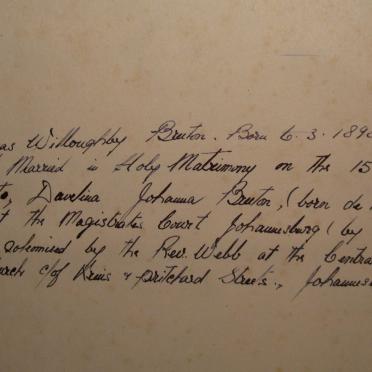 as Willoughby Bruton. Born 6.3.189
Married in Holy Matrimony on the 15
to, Davelina Johanna Bruton, (born de
at the Magistrates Court Johannesburg) by
solomised by the Rev. Webb at the Centra
urch c/of Kruis & Pritchard Streets., Johannes